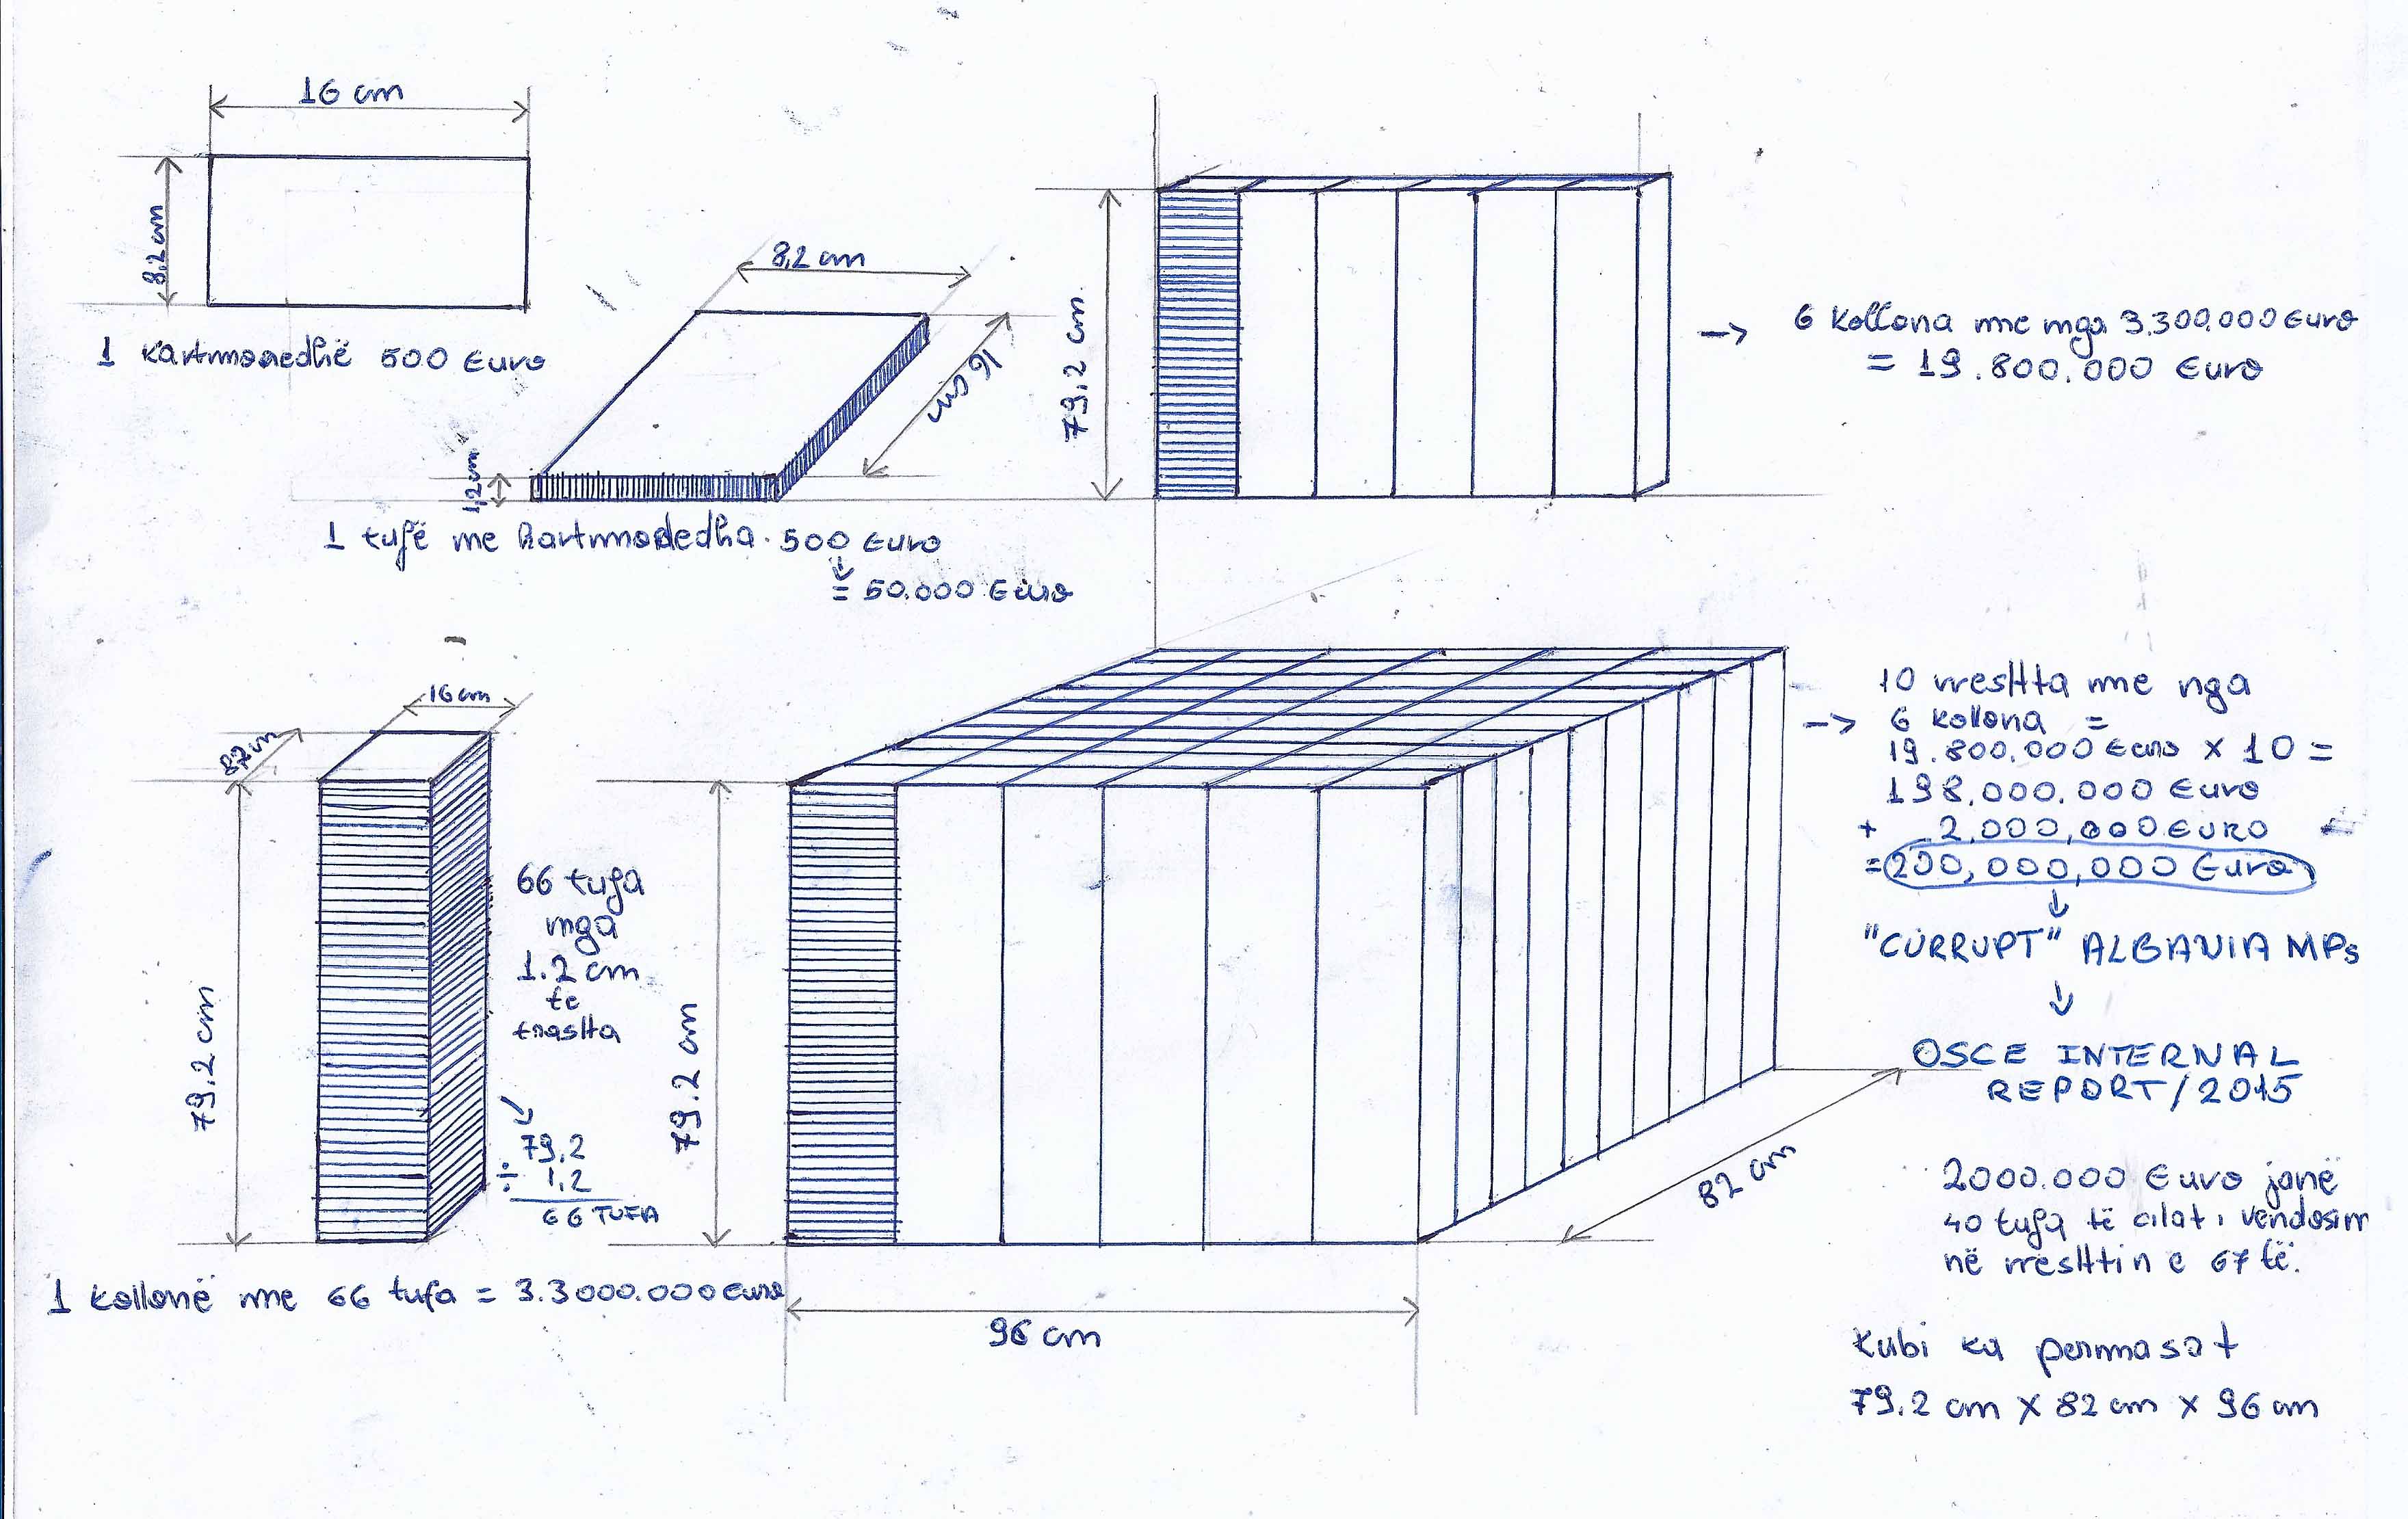 16 cm
8,2 cm
1 kartmonedhë 500 Euro
8,2 cm
16 cm
1,2 cm
1 tufë me kartmonedha 500 Euro
= 50.000 Euro
79,2 cm
→ 6 kollona me nga 3.300.000 Euro
= 19.800.000 Euro
16 cm
8.2 cm
79.2 cm
66 tufa
nga
1.2 cm
te
trasha
79,2
÷ 1,2
66 TUFA
1 kollonë me 66 tufa = 3.3000.000 euro
79.2 cm
96 cm
82 cm
→ 10 rreshta me nga
6 kollona =
19.800.000 Euro x 10 =
198,000.000 Euro
+ 2,000,000 EURO
= 200,000,000 Euro
"CURRUPT" ALBANIA MPs
OSCE INTERNAL
REPORT/2015
2000.000 Euro janë
40 tufa të cilat i vendosim
në rreshtin e 67 të.
Kubi ka permasat
79.2 cm x 82 cm x 96 cm